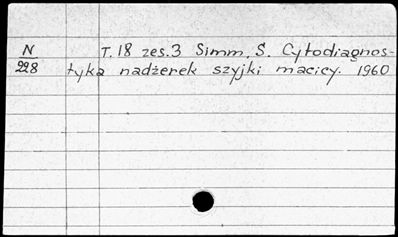 N
228
T. 18 zes. 3 Simm, S. Cytodiagnos-
tyka nadżerek szyjki macicy. 1960